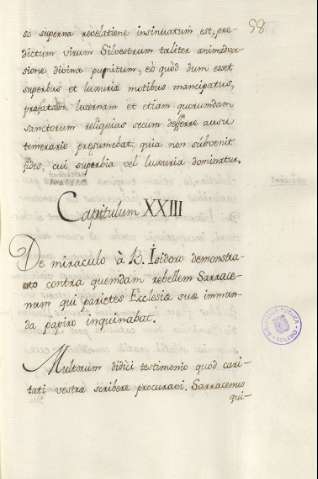 98
so superna revelatione insinuatum est, prę-
dictum virum Silvestrum taliter animadver-
sione divina punitum, eò quòd dum esset
superbus et luxuriæ motibus mancipatus,
prefatam lucernam et etiam quorumdam
sanctorum reliquias secum defferre ausu
temerario presumebat, quia non subvenit
fides, cui superbia vel luxuria dominatur.
Capitulum XXIII
De miraculo à B. Isidoro demonstra-
to contra quendam rebellem Sarrace-
num qui parietes Ecclesiæ suæ immun-
da papiro inquinabat.
Multorum didici testimonio quod cari-
tati vestræ scribere procuravi. Sarracenus
qui-